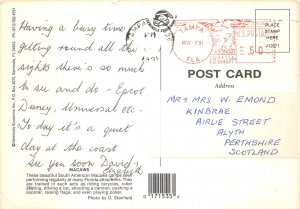 Having a busy time
getting round all the
sights there's so much
to see and do - Epcot
Disney, Universal etc.
To day it's a quiet
day at the coast
See you soon David
Elizabeth
MACAWS
These beautiful South American Macaws can be seen
performing regularly at many Florida attractions. They
are trained in such acts as riding bicycles, roller
skating, driving a car, shooting a cannon, pushing a
scooter, raising flags, and even playing poker.
Photo by D. Stanfield
TAMPA
NOV-5'91
FLA
U.S. POSTAGE
.50
PM
1991
PLACE
STAMP
HERE
POST CARD
Address
MR & MRS W. EMOND
KINBRAE
AIRLIE STREET
ALYTH
PERTHSHIRE
SCOTLAND
9 171535